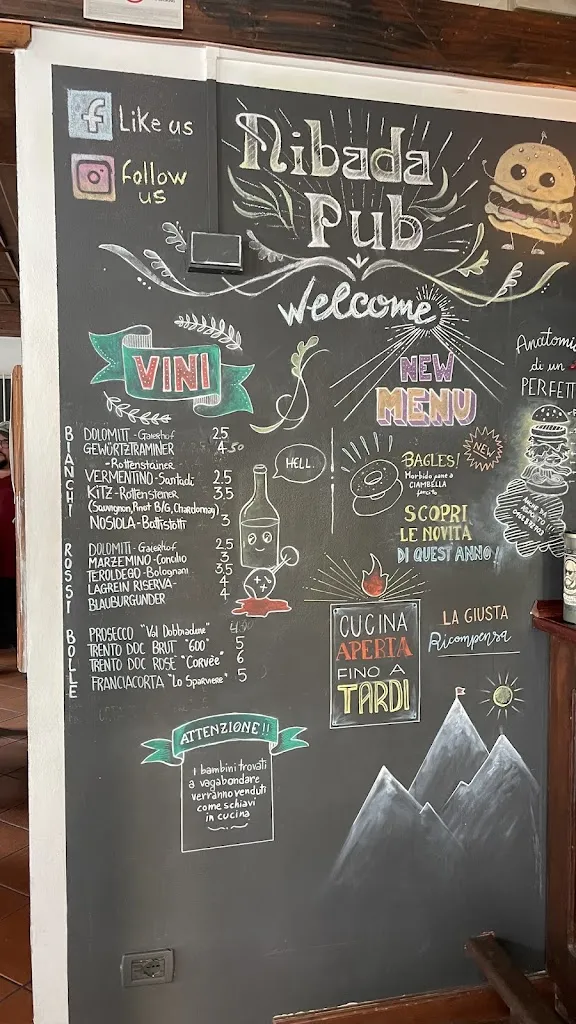 Like us
follow
us
Nibada
Pub
Welcome
VINI
BIANCHI
DOLOMITI - Gaierhof 2.5
GEWÜRTZTRAMINER 4.50
- Rottensteiner
VERMENTINO - Santadi 2.5
KITZ - Rottensteiner 3.5
(Sauvignon, Pinot B/G, Chardonnay)
NOSIOLA - Battistotti 3
ROSSI
DOLOMITI - Gaierhof 2.5
MARZEMINO - Concilio 3
TEROLDEGO - Bolognani 3.5
LAGREIN RISERVA - 4
BLAUBURGUNDER 4
BOLLE
PROSECCO "Val Dobbiadene"
TRENTO DOC BRUT "600" 5
TRENTO DOC ROSÉ "Corvèe" 6
FRANCIACORTA "Lo Sparviere" 5
HELL.
NEW
MENU
BAGLES!
Morbido pane a
CIAMBELLA
farcito
NEW
SCOPRI
LE NOVITÀ
DI QUEST'ANNO!
Anatomia
di un
PERFETT
CUCINA
APERTA
FINO A
TARDI
LA GIUSTA
Ricompensa
ATTENZIONE!!
i bambini trovati
a vagabondare
verranno venduti
come schiavi
in cucina